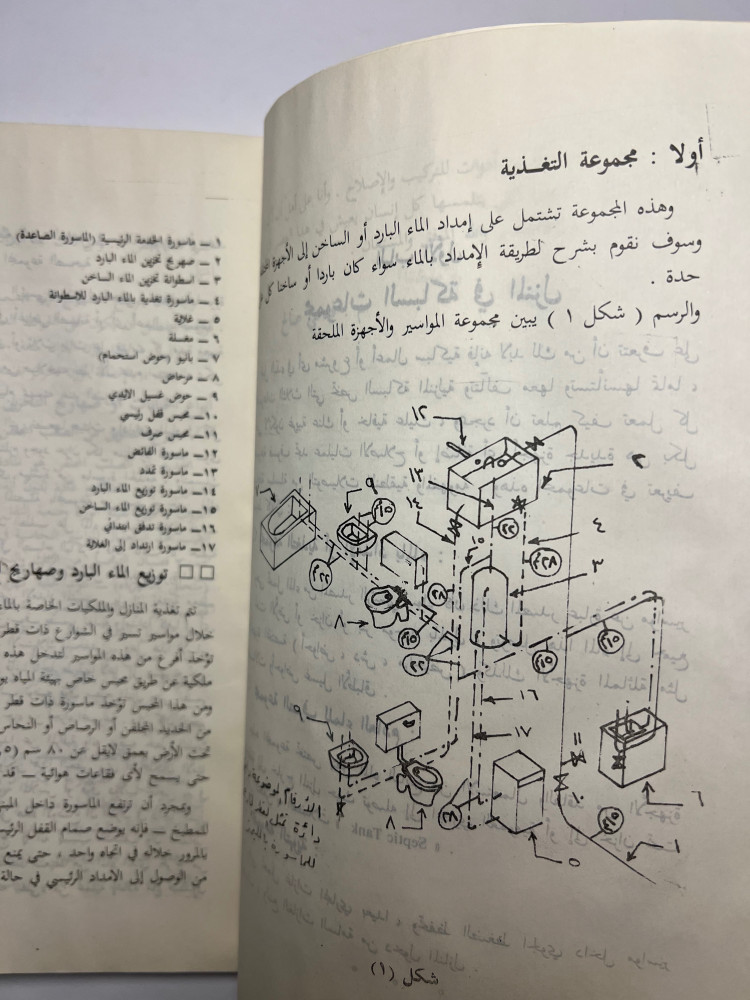 أولا : مجموعة التغـذية
وهذه المجموعة تشتمل على إمداد الماء البارد أو الساخن إلى الأجهزة
وسوف نقوم بشرح لطريقة الإمداد بالماء سواء كان باردا أو ساخنا كل
حدة .
والرسم ( شكل ١ ) يبين مجموعة المواسير والأجهزة الملحقة
١٢
٢
١٣
١٤
٩
٤
٣
٨
١٦
١٧
٩
٨
٥
٦
١
١٥
٢٢
٢٨
الأرقام الموضوعة
دائرة تمثل
شكل (١)
١ ــ ماسورة الخدمة الرئيسية (الماسورة الصاعدة)
٢ ــ صهريج تخزين الماء البارد
٣ ــ اسطوانة تخزين الماء الساخن
٤ ــ ماسورة تغذية بالماء البارد للاسطوانة
٥ ــ غلاية
٦ ــ مغسلة
٧ ــ بانيو (حوض استحمام)
٨ ــ مرحاض
٩ ــ حوض غسيل الايدي
١٠ــ محبس قفل رئيسي
١١ــ محبس صرف
١٢ــ ماسورة الفائض
١٣ــ ماسورة تمدد
١٤ــ ماسورة توزيع الماء البارد
١٥ــ ماسورة توزيع الماء الساخن
١٦ــ ماسورة تدفق ابتدائي
١٧ــ ماسورة ارتداد إلى الغلاية
□ □ توزيع الماء البارد وصهاريج
تتم تغذية المنازل والملكيات الخاصة بالماء
خلال مواسير تسير في الشوارع ذات قطر
تؤخذ أفرع من هذه المواسير لتدخل هذه
ملكية عن طريق محبس خاص بهيئة المياه
ومن هذا المحبس تؤخذ ماسورة ذات قطر
من الحديد المجلفن أو الرصاص أو النحاس
تحت الأرض بعمق لايقل عن ٨٠ سم
حتى يسمح لأي فقاعات هوائية ــ قد
وبمجرد أن ترتفع الماسورة داخل
للمطبخ ــ فإنه يوضع صمام القفل
بالمرور خلاله في اتجاه واحد ، حتى يمنع
من الوصول إلى الامداد الرئيسي في حالة